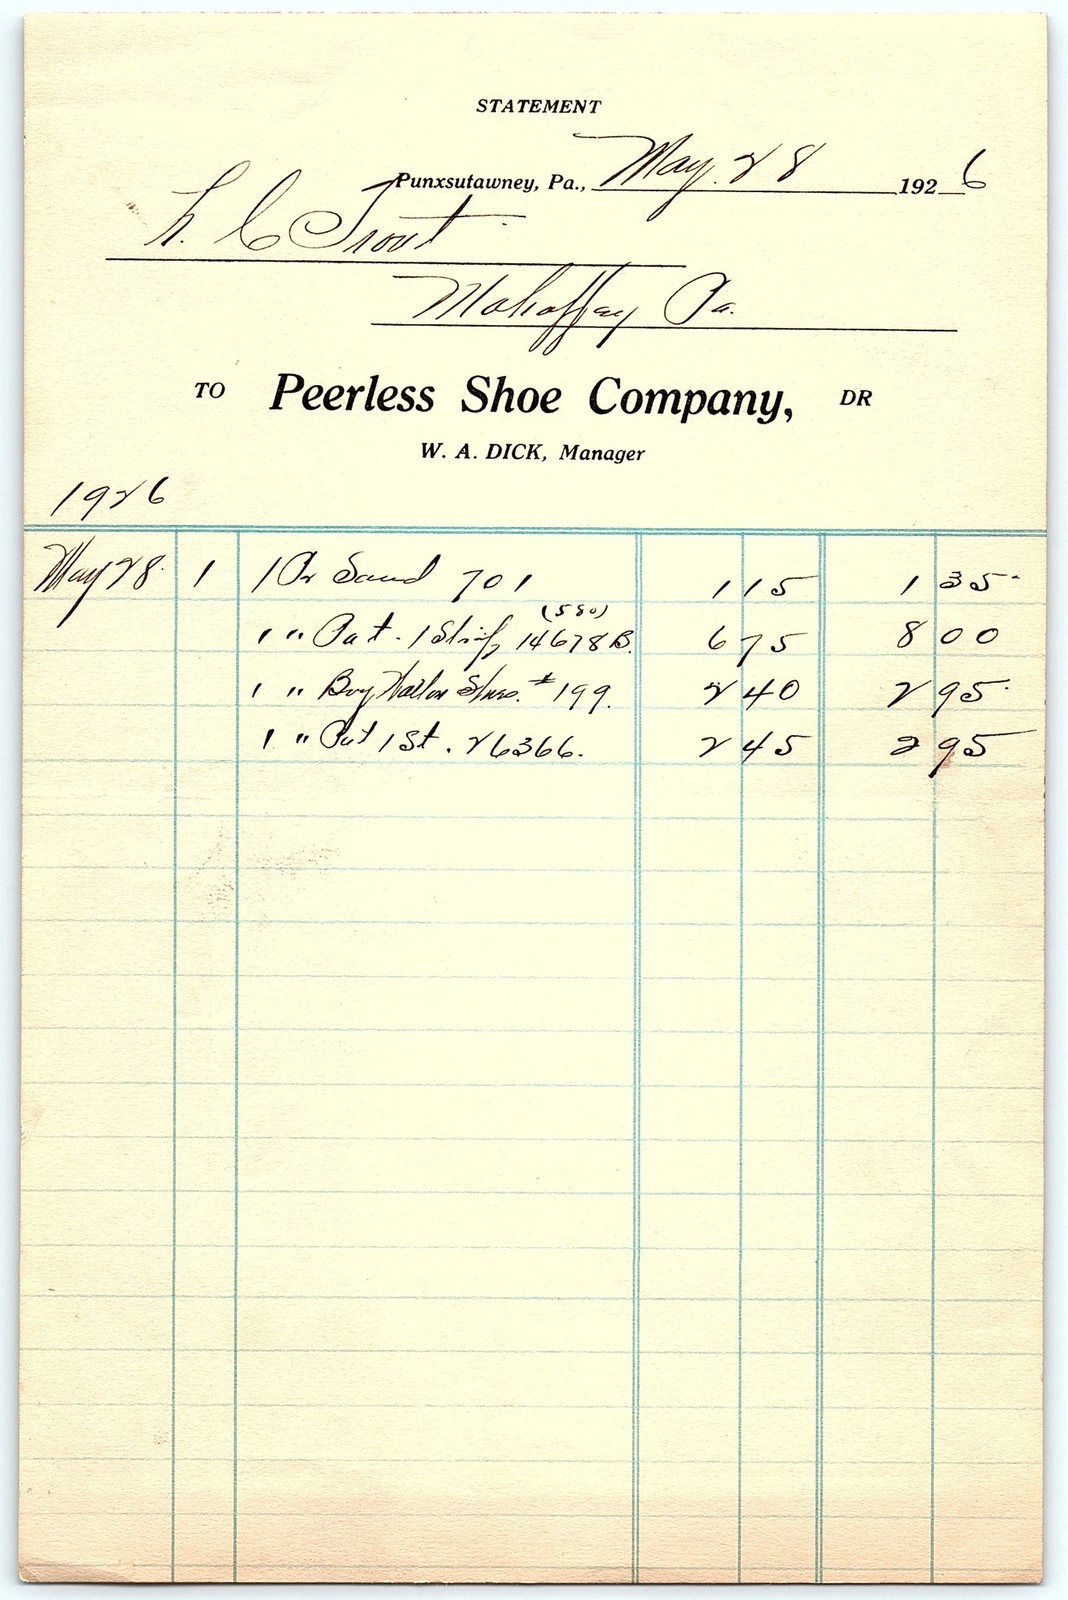 STATEMENT
Punxsutawney, Pa., May. 28 1926
h. C Trout
Mahaffay Pa.
TO Peerless Shoe Company, DR
W. A. DICK, Manager
1926
May 28. 1 1 Pr 701 1 15 1 35
(580)
1 " Pat. 1 Strip 14678B. 6 75 8 00
1 " Boy Shoes. #199. 2 40 2 95
1 " Pat 1 St. 26366. 2 45 2 95